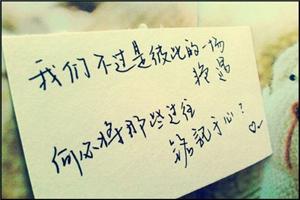 我们不过是彼此的一场
挣遇
何必将那些过往
铭記于心?